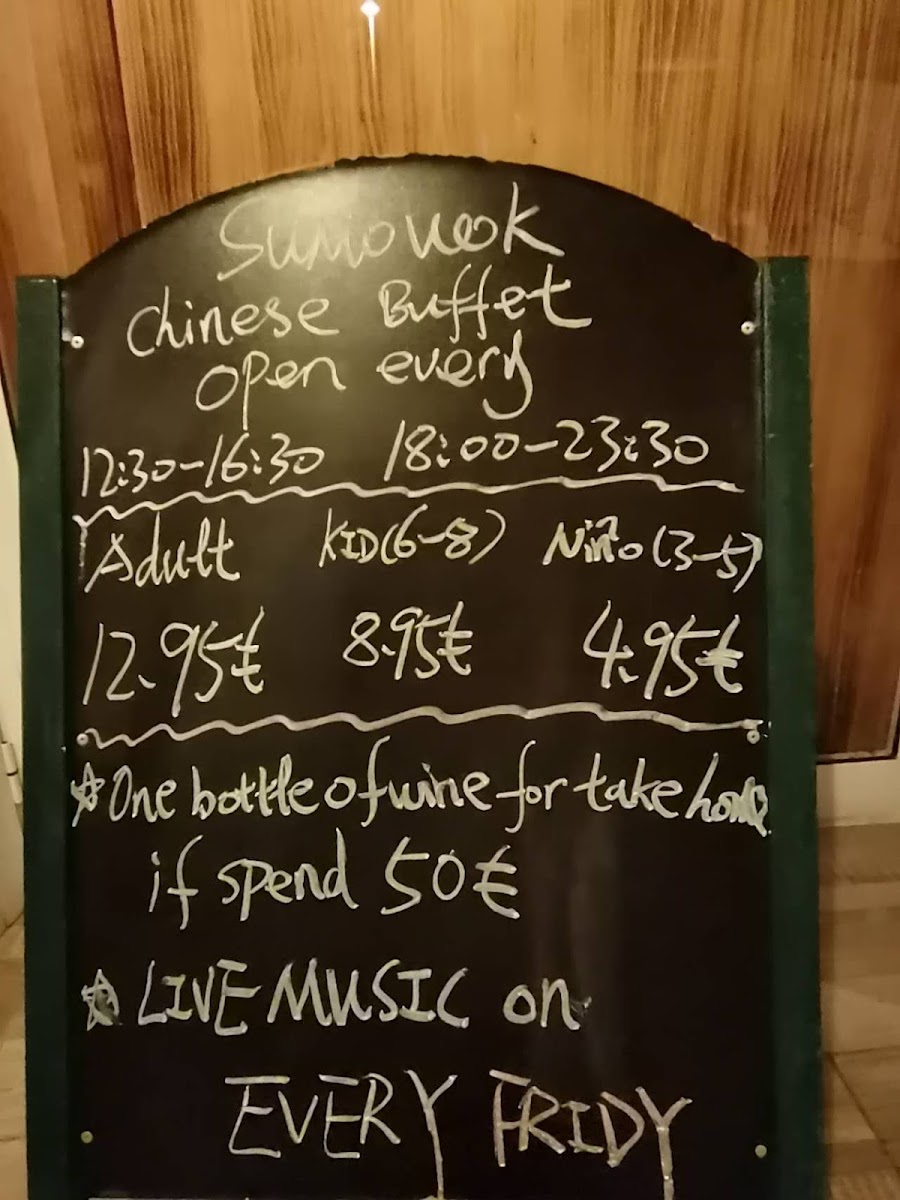 Sumo Wok
Chinese Buffet
open every
12:30-16:30 18:00-23:30
Adult KID(6-8) Niño(3-5)
12.95€ 8.95€ 4.95€
☆One bottle of wine for take home
if spend 50€
☆ LIVE MUSIC on
EVERY FRIDY